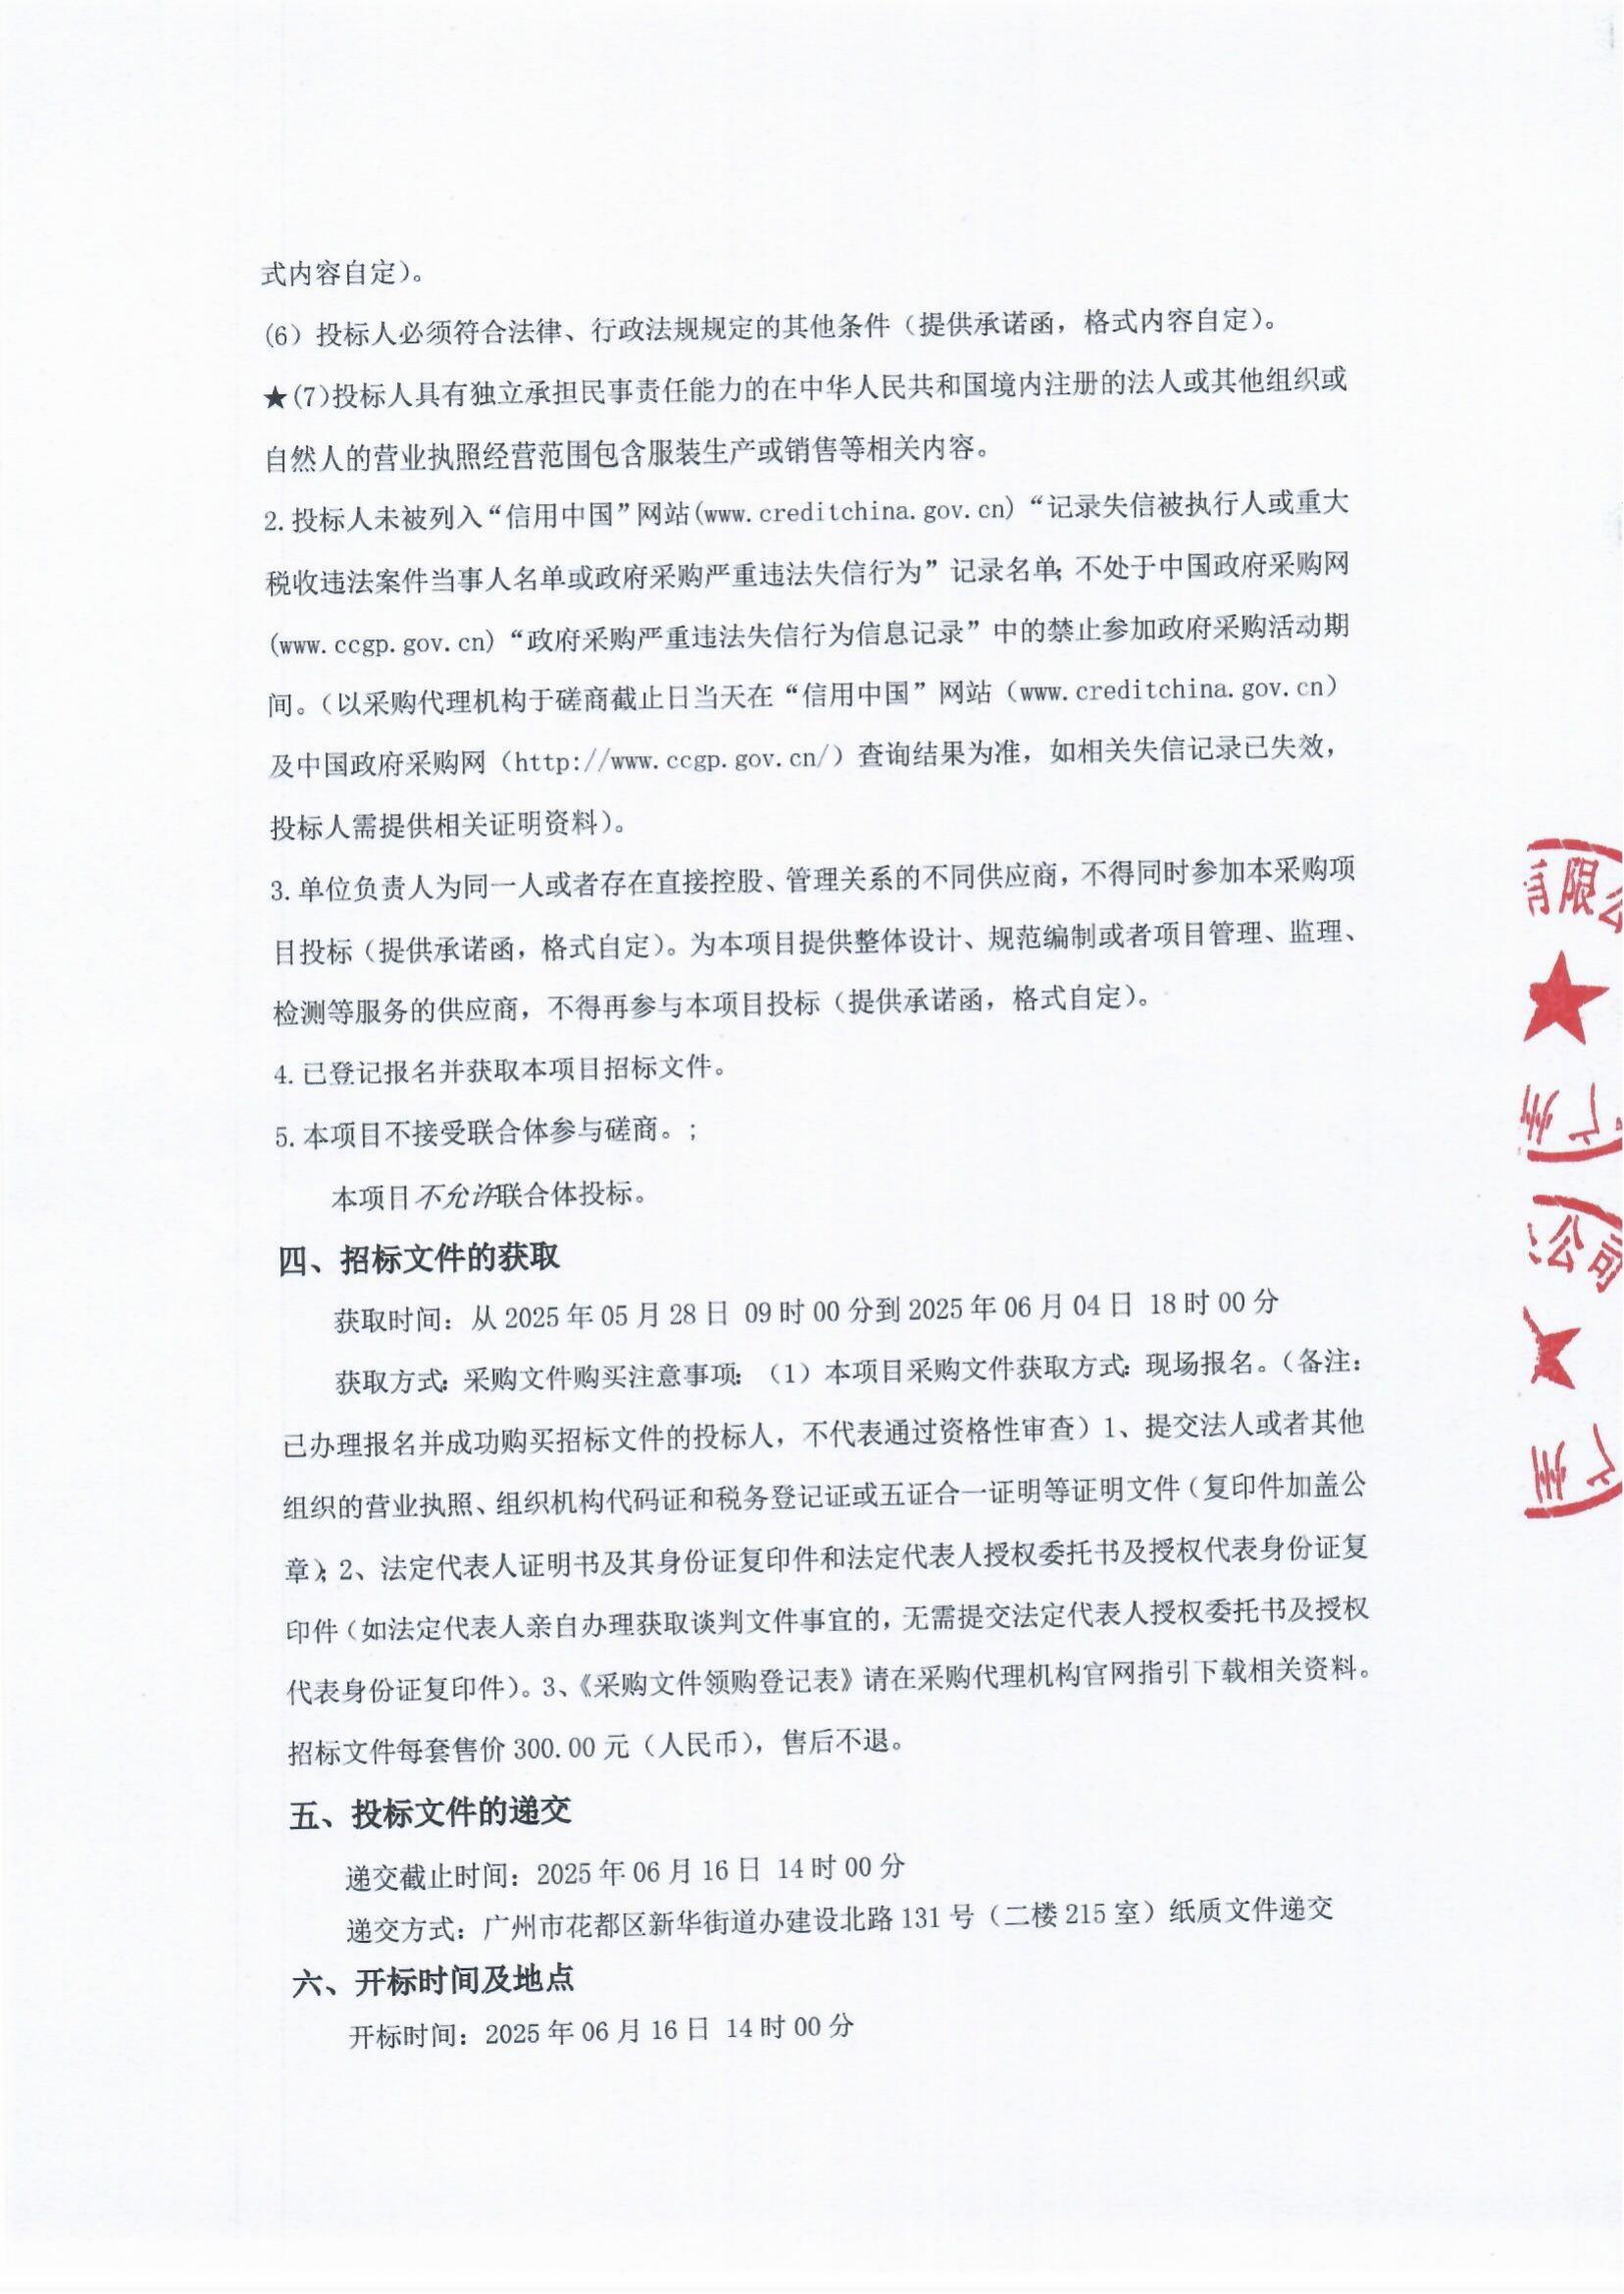 式内容自定）。
(6）投标人必须符合法律、行政法规规定的其他条件（提供承诺函，格式内容自定）。
★(7)投标人具有独立承担民事责任能力的在中华人民共和国境内注册的法人或其他组织或
自然人的营业执照经营范围包含服装生产或销售等相关内容。
2.投标人未被列入“信用中国”网站(www.creditchina.gov.cn)“记录失信被执行人或重大
税收违法案件当事人名单或政府采购严重违法失信行为”记录名单；不处于中国政府采购网
(www.ccgp.gov.cn)“政府采购严重违法失信行为信息记录”中的禁止参加政府采购活动期
间。（以采购代理机构于磋商截止日当天在“信用中国”网站（www.creditchina.gov.cn）
及中国政府采购网（http://www.ccgp.gov.cn/）查询结果为准，如相关失信记录已失效，
投标人需提供相关证明资料）。
3.单位负责人为同一人或者存在直接控股、管理关系的不同供应商，不得同时参加本采购项
目投标（提供承诺函，格式自定）。为本项目提供整体设计、规范编制或者项目管理、监理、
检测等服务的供应商，不得再参与本项目投标（提供承诺函，格式自定）。
4.已登记报名并获取本项目招标文件。
5.本项目不接受联合体参与磋商。;
本项目不允许联合体投标。
四、招标文件的获取
获取时间：从 2025 年 05 月 28 日 09 时 00 分到 2025 年 06 月 04 日 18 时 00 分
获取方式：采购文件购买注意事项：（1）本项目采购文件获取方式：现场报名。（备注：
已办理报名并成功购买招标文件的投标人，不代表通过资格性审查）1、提交法人或者其他
组织的营业执照、组织机构代码证和税务登记证或五证合一证明等证明文件（复印件加盖公
章）；2、法定代表人证明书及其身份证复印件和法定代表人授权委托书及授权代表身份证复
印件（如法定代表人亲自办理获取谈判文件事宜的，无需提交法定代表人授权委托书及授权
代表身份证复印件）。3、《采购文件领购登记表》请在采购代理机构官网指引下载相关资料。
招标文件每套售价 300.00 元（人民币），售后不退。
五、投标文件的递交
递交截止时间：2025 年 06 月 16 日 14 时 00 分
递交方式：广州市花都区新华街道办建设北路 131 号（二楼 215 室）纸质文件递交
六、开标时间及地点
开标时间：2025 年 06 月 16 日 14 时 00 分
有限公
广州
公司
广州